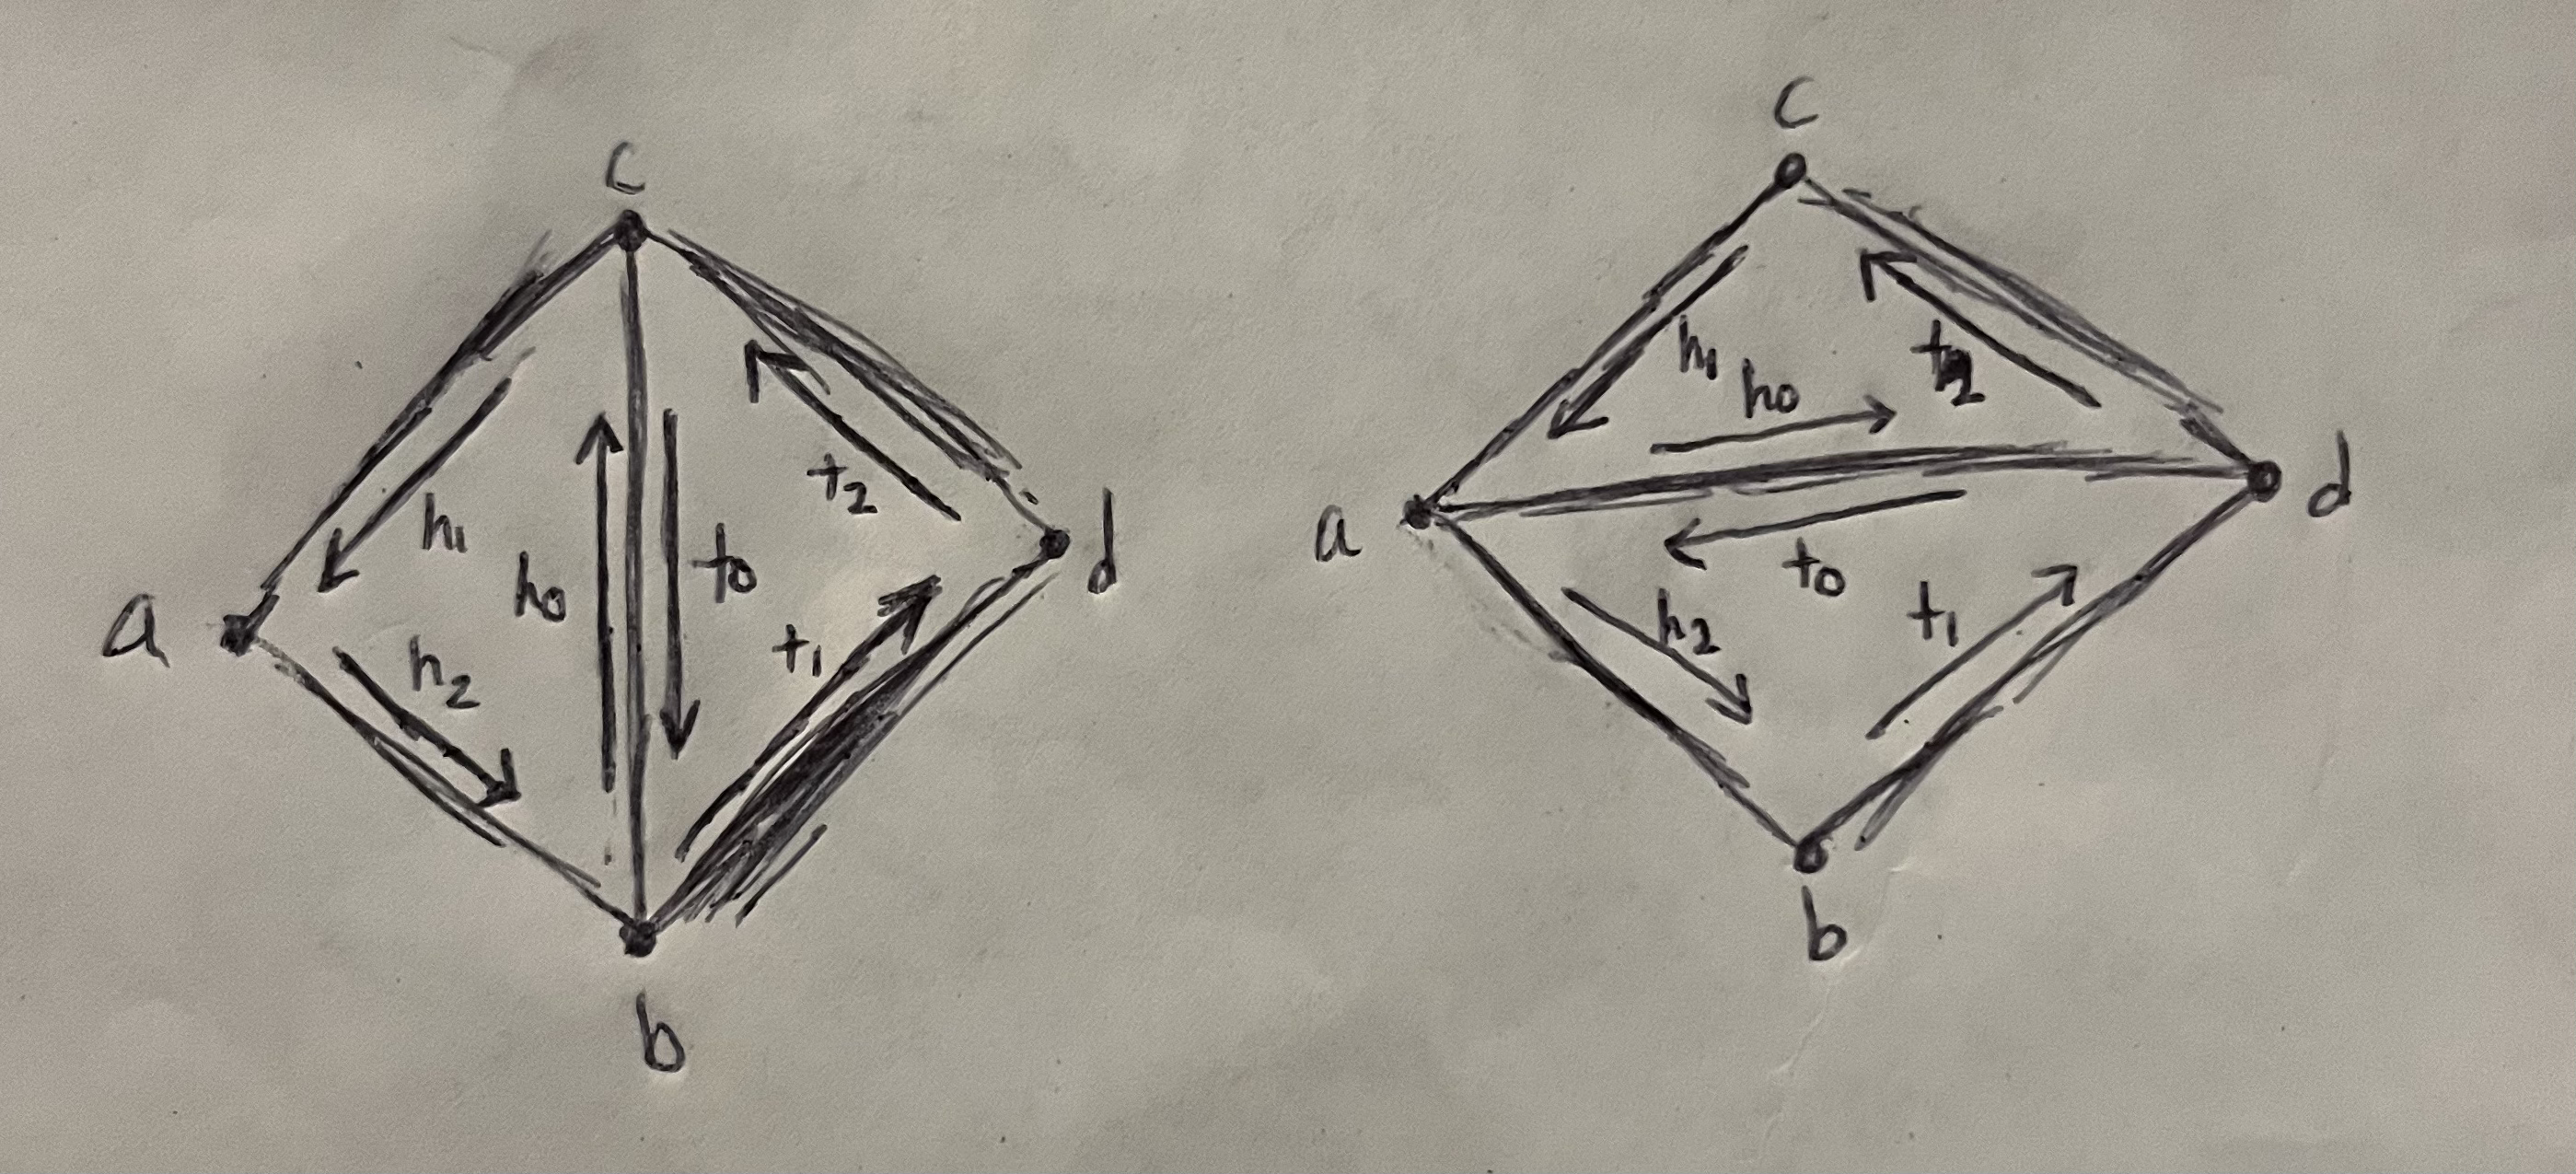 c
h₁
h₀
t₀
t₂
a
h₂
t₁
d
b
c
h₁
h₀
t₂
a
t₀
h₂
t₁
d
b